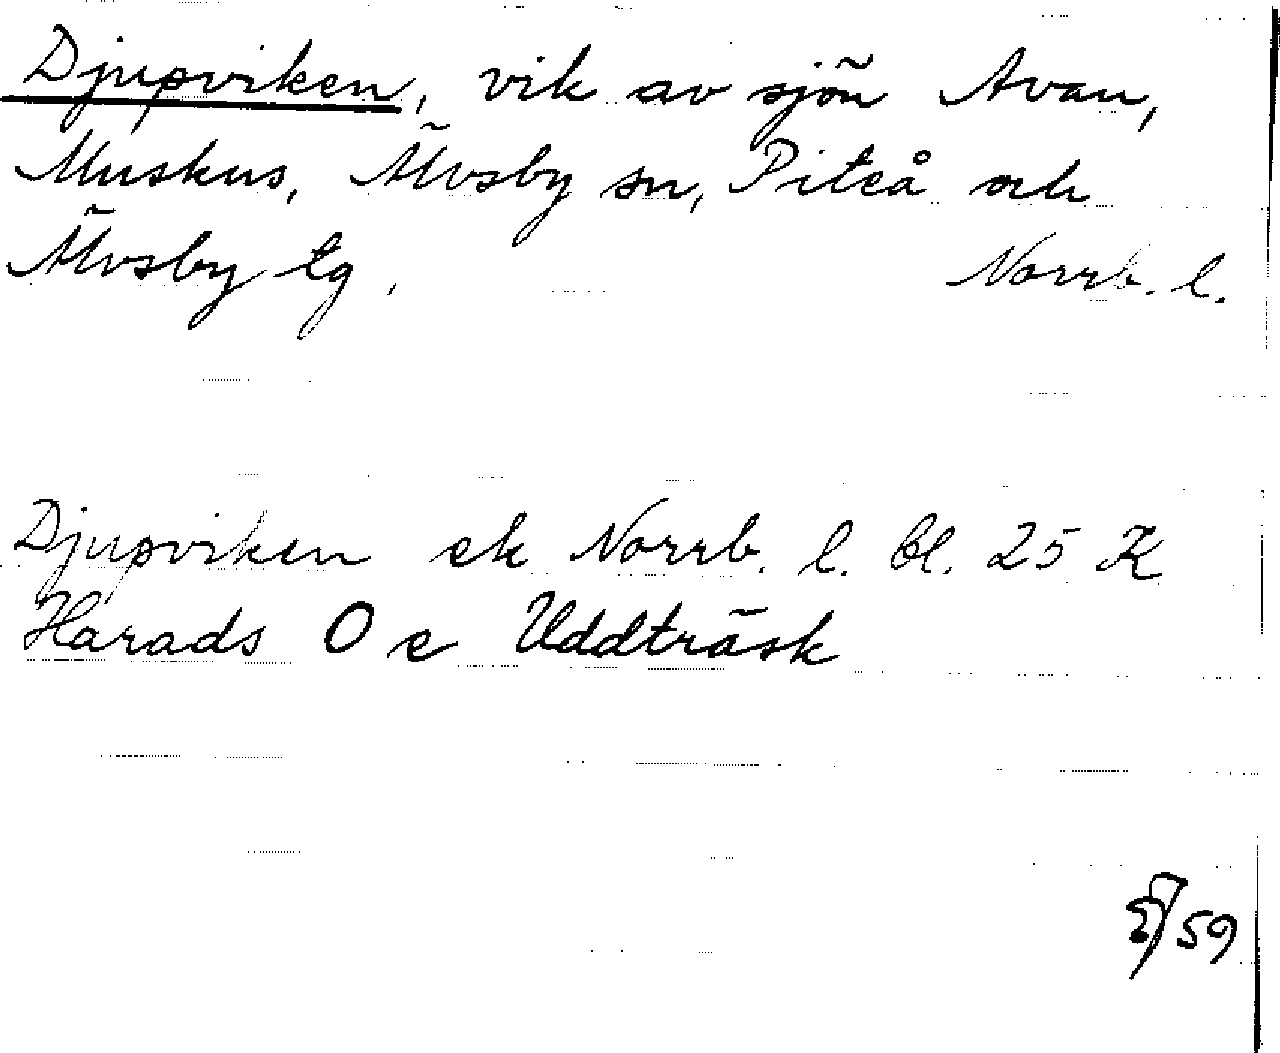 Djupviken, vik av sjön Avan,
Muskus, Älvsby sn, Piteå och
Älvsby tg, Norrb. l.
Djupviken ek Norrb. l. bl. 25 K
Harads O e Uddträsk
/59